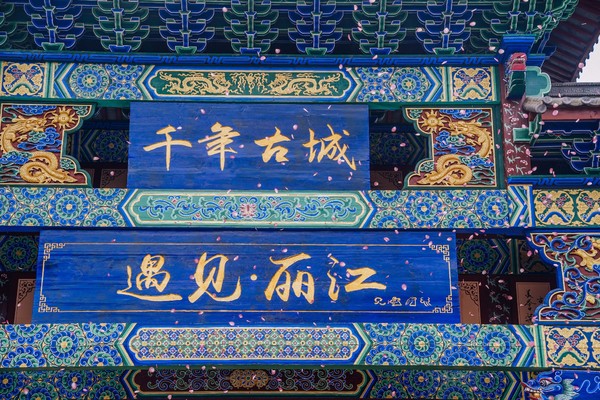 千年古城
遇见·丽江